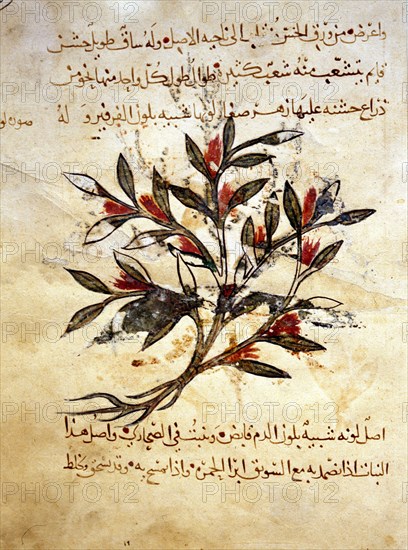 واعرض من ورق الخس الى ناحيه الاصل وله ساق طويل خشن
قايم يتشعب منه شعب كثيره طوال طول كل واحد منها نحو من
ذراع خشنه عليها زهر صغار لونها شبيه بلون الفرفير وله
اصل لونه شبيه بلون الدم قابض وينبت في الصحارى واصل هذا
النبات اذا تضمد به مع السويق ابرا الحمره واذا مسح به وقد سحق وخلط